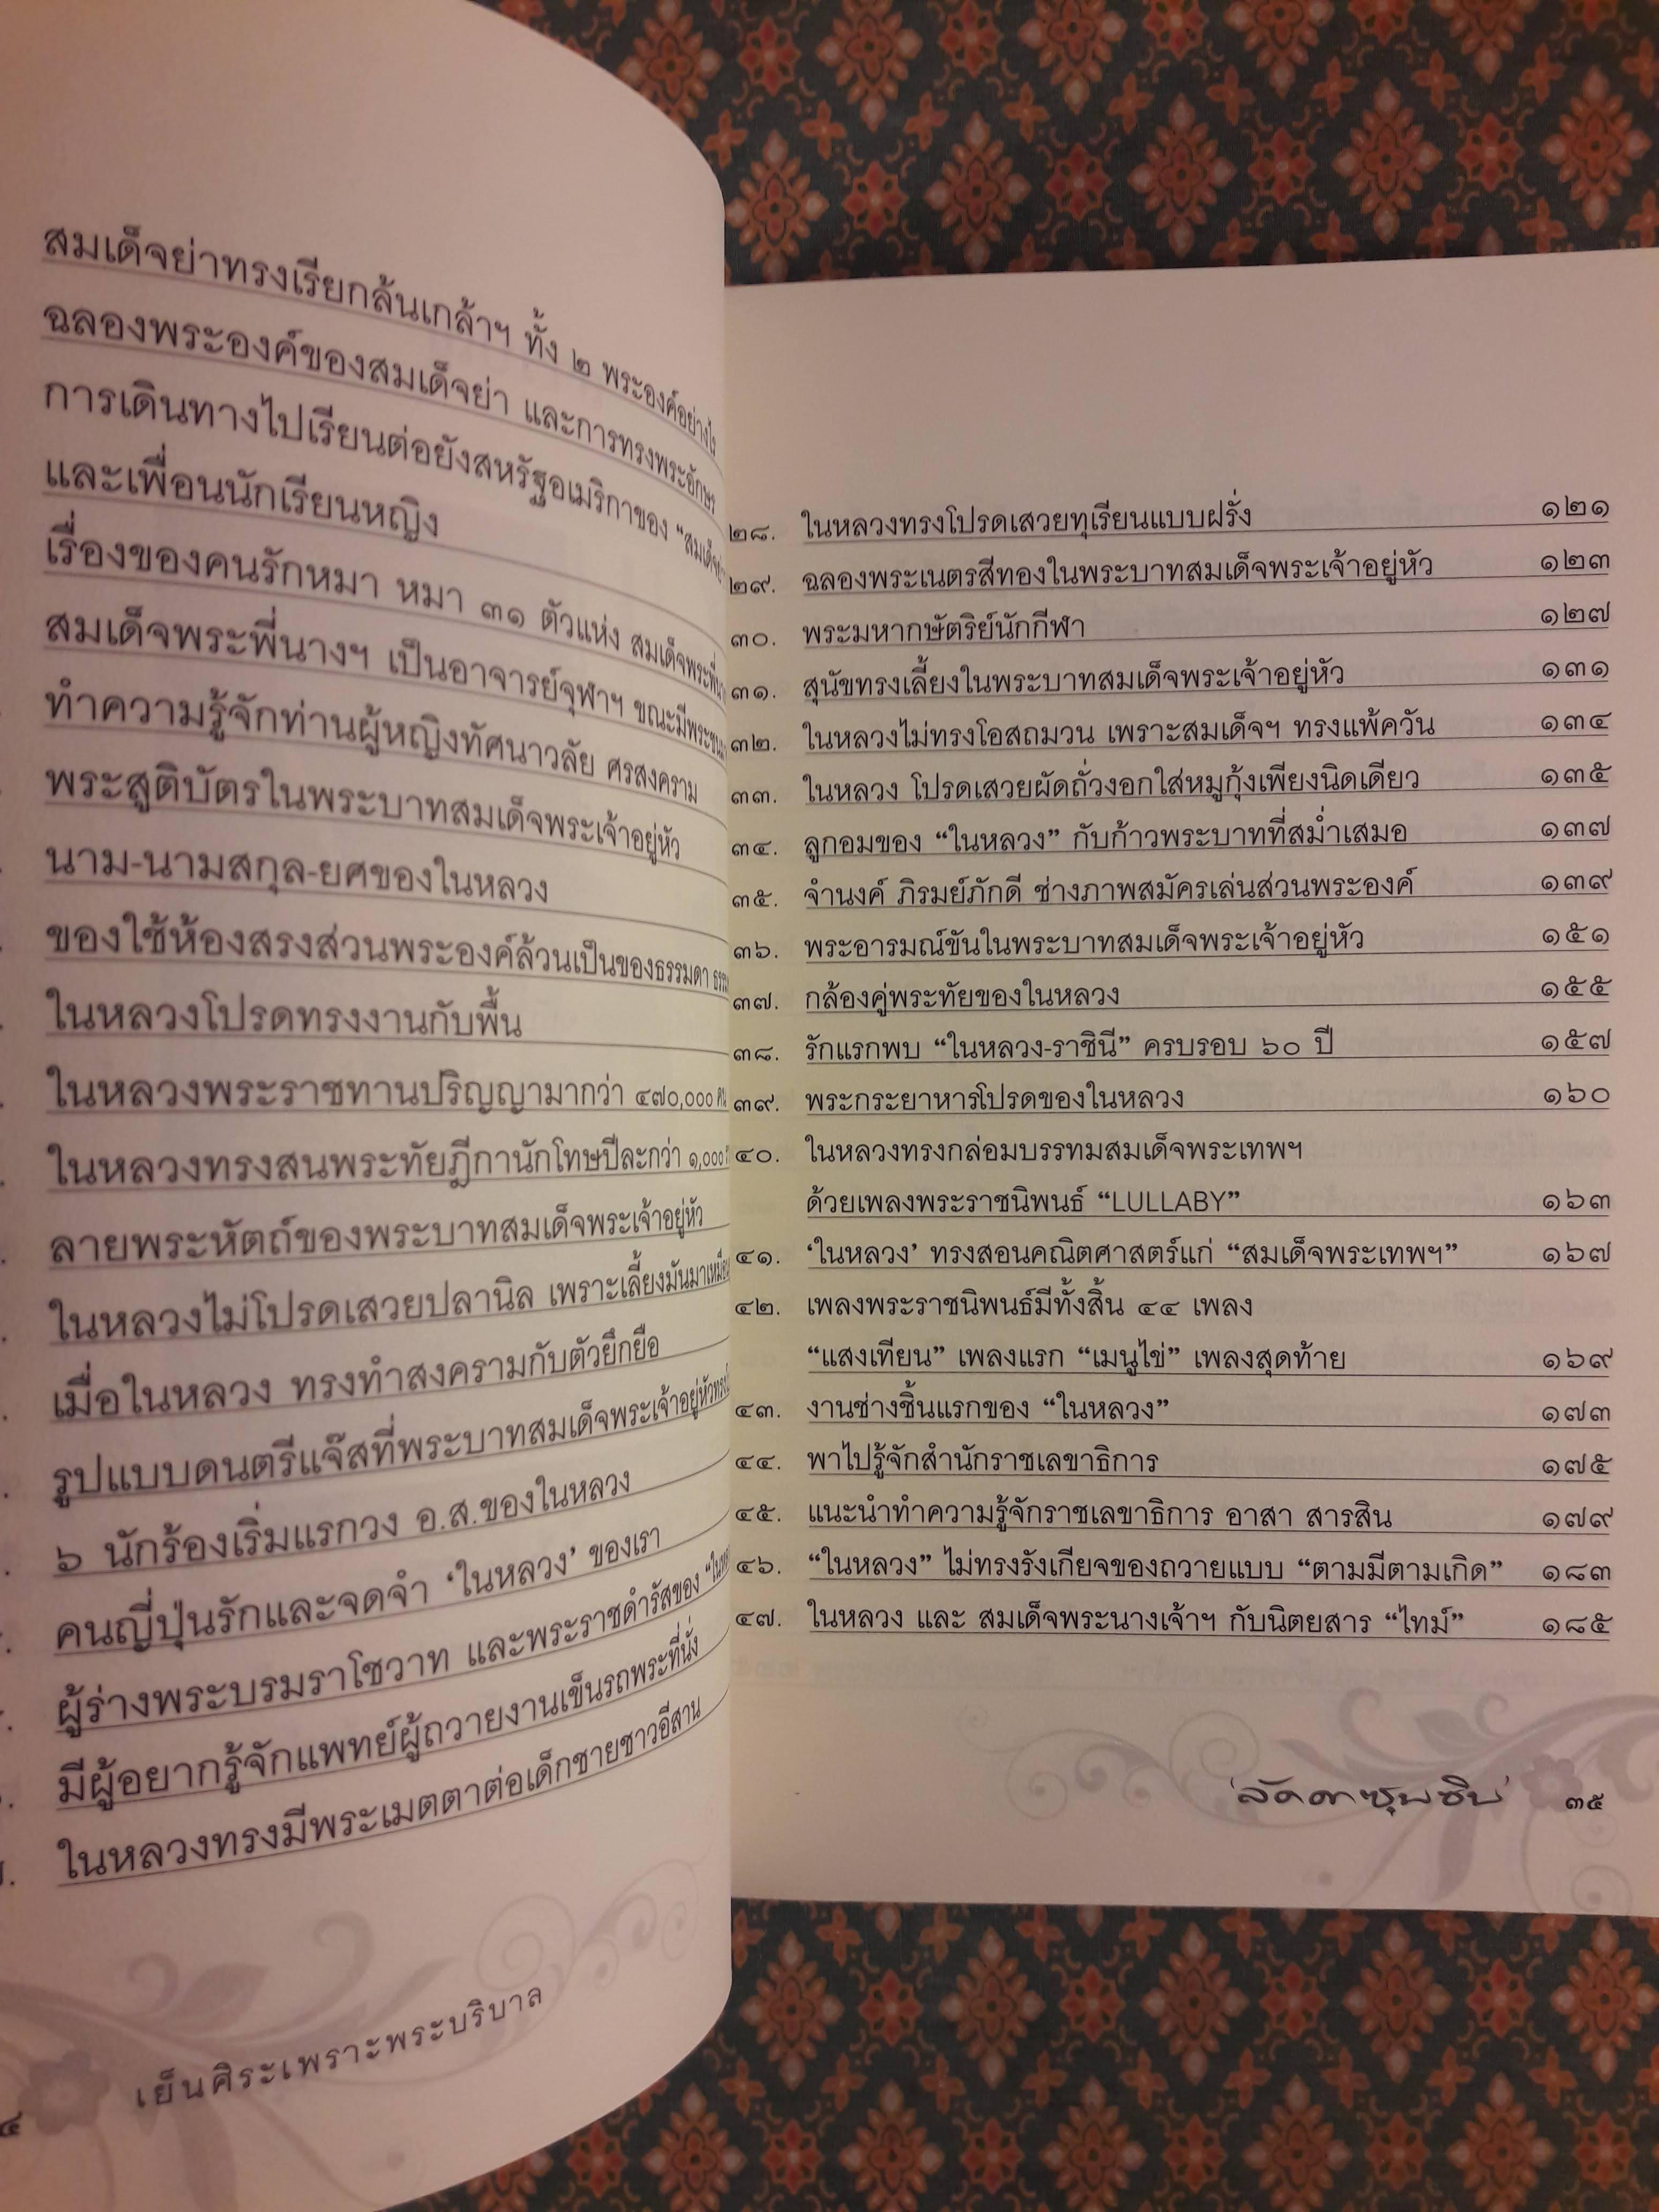 สมเด็จย่าทรงเรียกล้นเกล้าฯ ทั้ง ๒ พระองค์อย่างไ
ฉลองพระองค์ของสมเด็จย่า และการทรงพระอักษร
การเดินทางไปเรียนต่อยังสหรัฐอเมริกาของ “สมเด็จย่า
และเพื่อนนักเรียนหญิง
เรื่องของคนรักหมา หมา ๓๑ ตัวแห่ง สมเด็จพระพี่น
สมเด็จพระพี่นางฯ เป็นอาจารย์จุฬาฯ ขณะมีพระชนม
ทำความรู้จักท่านผู้หญิงทัศนาวลัย ศรสงคราม
พระสูติบัตรในพระบาทสมเด็จพระเจ้าอยู่หัว
นาม-นามสกุล-ยศของในหลวง
ของใช้ห้องสรงส่วนพระองค์ล้วนเป็นของธรรมดา
ในหลวงโปรดทรงงานกับพื้น
ในหลวงพระราชทานปริญญามากว่า ๔๗๐,๐๐๐
ในหลวงทรงสนพระทัยฎีกานักโทษปีละกว่า ๑,๐๐๐
ลายพระหัตถ์ของพระบาทสมเด็จพระเจ้าอยู่หัว
ในหลวงไม่โปรดเสวยปลานิล เพราะเลี้ยงมันมาเหมือน
เมื่อในหลวง ทรงทำสงครามกับตัวยึกยือ
รูปแบบดนตรีแจ๊สที่พระบาทสมเด็จพระเจ้าอยู่หัวทรง
๖ นักร้องเริ่มแรกวง อ.ส.ของในหลวง
คนญี่ปุ่นรักและจดจำ ‘ในหลวง’ ของเรา
ผู้ร่างพระบรมราโชวาท และพระราชดำรัสของ “ในห
มีผู้อยากรู้จักแพทย์ผู้ถวายงานเข็นรถพระที่นั่ง
ในหลวงทรงมีพระเมตตาต่อเด็กชายชาวอีสาน
๔ เย็นศิระเพราะพระบริบาล
๒๘. ในหลวงทรงโปรดเสวยทุเรียนแบบฝรั่ง ๑๒๑
๒๙. ฉลองพระเนตรสีทองในพระบาทสมเด็จพระเจ้าอยู่หัว ๑๒๓
๓๐. พระมหากษัตริย์นักกีฬา ๑๒๗
๓๑. สุนัขทรงเลี้ยงในพระบาทสมเด็จพระเจ้าอยู่หัว ๑๓๑
๓๒. ในหลวงไม่ทรงโอสถมวน เพราะสมเด็จฯ ทรงแพ้ควัน ๑๓๔
๓๓. ในหลวง โปรดเสวยผัดถั่วงอกใส่หมูกุ้งเพียงนิดเดียว ๑๓๕
๓๔. ลูกอมของ “ในหลวง” กับก้าวพระบาทที่สม่ำเสมอ ๑๓๗
๓๕. จำนงค์ ภิรมย์ภักดี ช่างภาพสมัครเล่นส่วนพระองค์ ๑๓๙
๓๖. พระอารมณ์ขันในพระบาทสมเด็จพระเจ้าอยู่หัว ๑๕๑
๓๗. กล้องคู่พระทัยของในหลวง ๑๕๕
๓๘. รักแรกพบ “ในหลวง-ราชินี” ครบรอบ ๖๐ ปี ๑๕๗
๓๙. พระกระยาหารโปรดของในหลวง ๑๖๐
๔๐. ในหลวงทรงกล่อมบรรทมสมเด็จพระเทพฯ
ด้วยเพลงพระราชนิพนธ์ “LULLABY” ๑๖๓
๔๑. ‘ในหลวง’ ทรงสอนคณิตศาสตร์แก่ “สมเด็จพระเทพฯ” ๑๖๗
๔๒. เพลงพระราชนิพนธ์มีทั้งสิ้น ๔๔ เพลง
“แสงเทียน” เพลงแรก “เมนูไข่” เพลงสุดท้าย ๑๖๙
๔๓. งานช่างชิ้นแรกของ “ในหลวง” ๑๗๓
๔๔. พาไปรู้จักสำนักราชเลขาธิการ ๑๗๕
๔๕. แนะนำทำความรู้จักราชเลขาธิการ อาสา สารสิน ๑๗๙
๔๖. “ในหลวง” ไม่ทรงรังเกียจของถวายแบบ “ตามมีตามเกิด” ๑๘๓
๔๗. ในหลวง และ สมเด็จพระนางเจ้าฯ กับนิตยสาร “ไทม์” ๑๘๕
‘ลัดดาซุบซิบ’ ๓๕